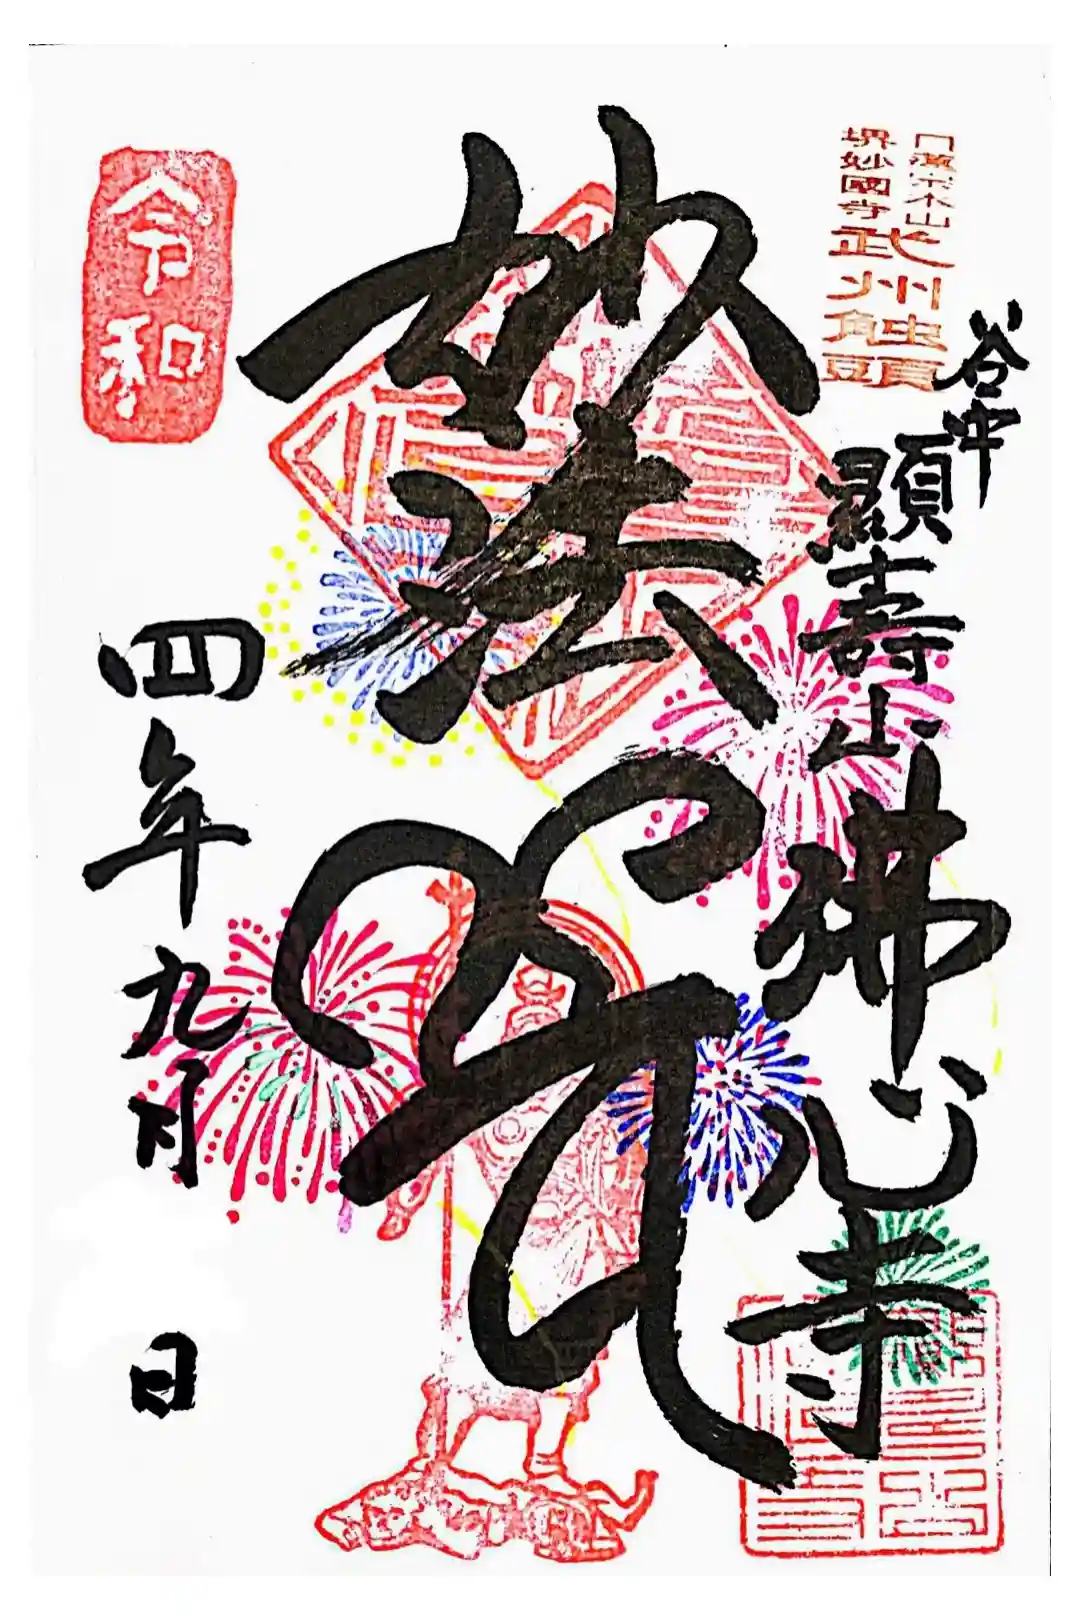 日蓮宗本山
堺妙國寺
武州触頭
谷中
顯壽山
佛心寺
妙法
令和
四年九月
日